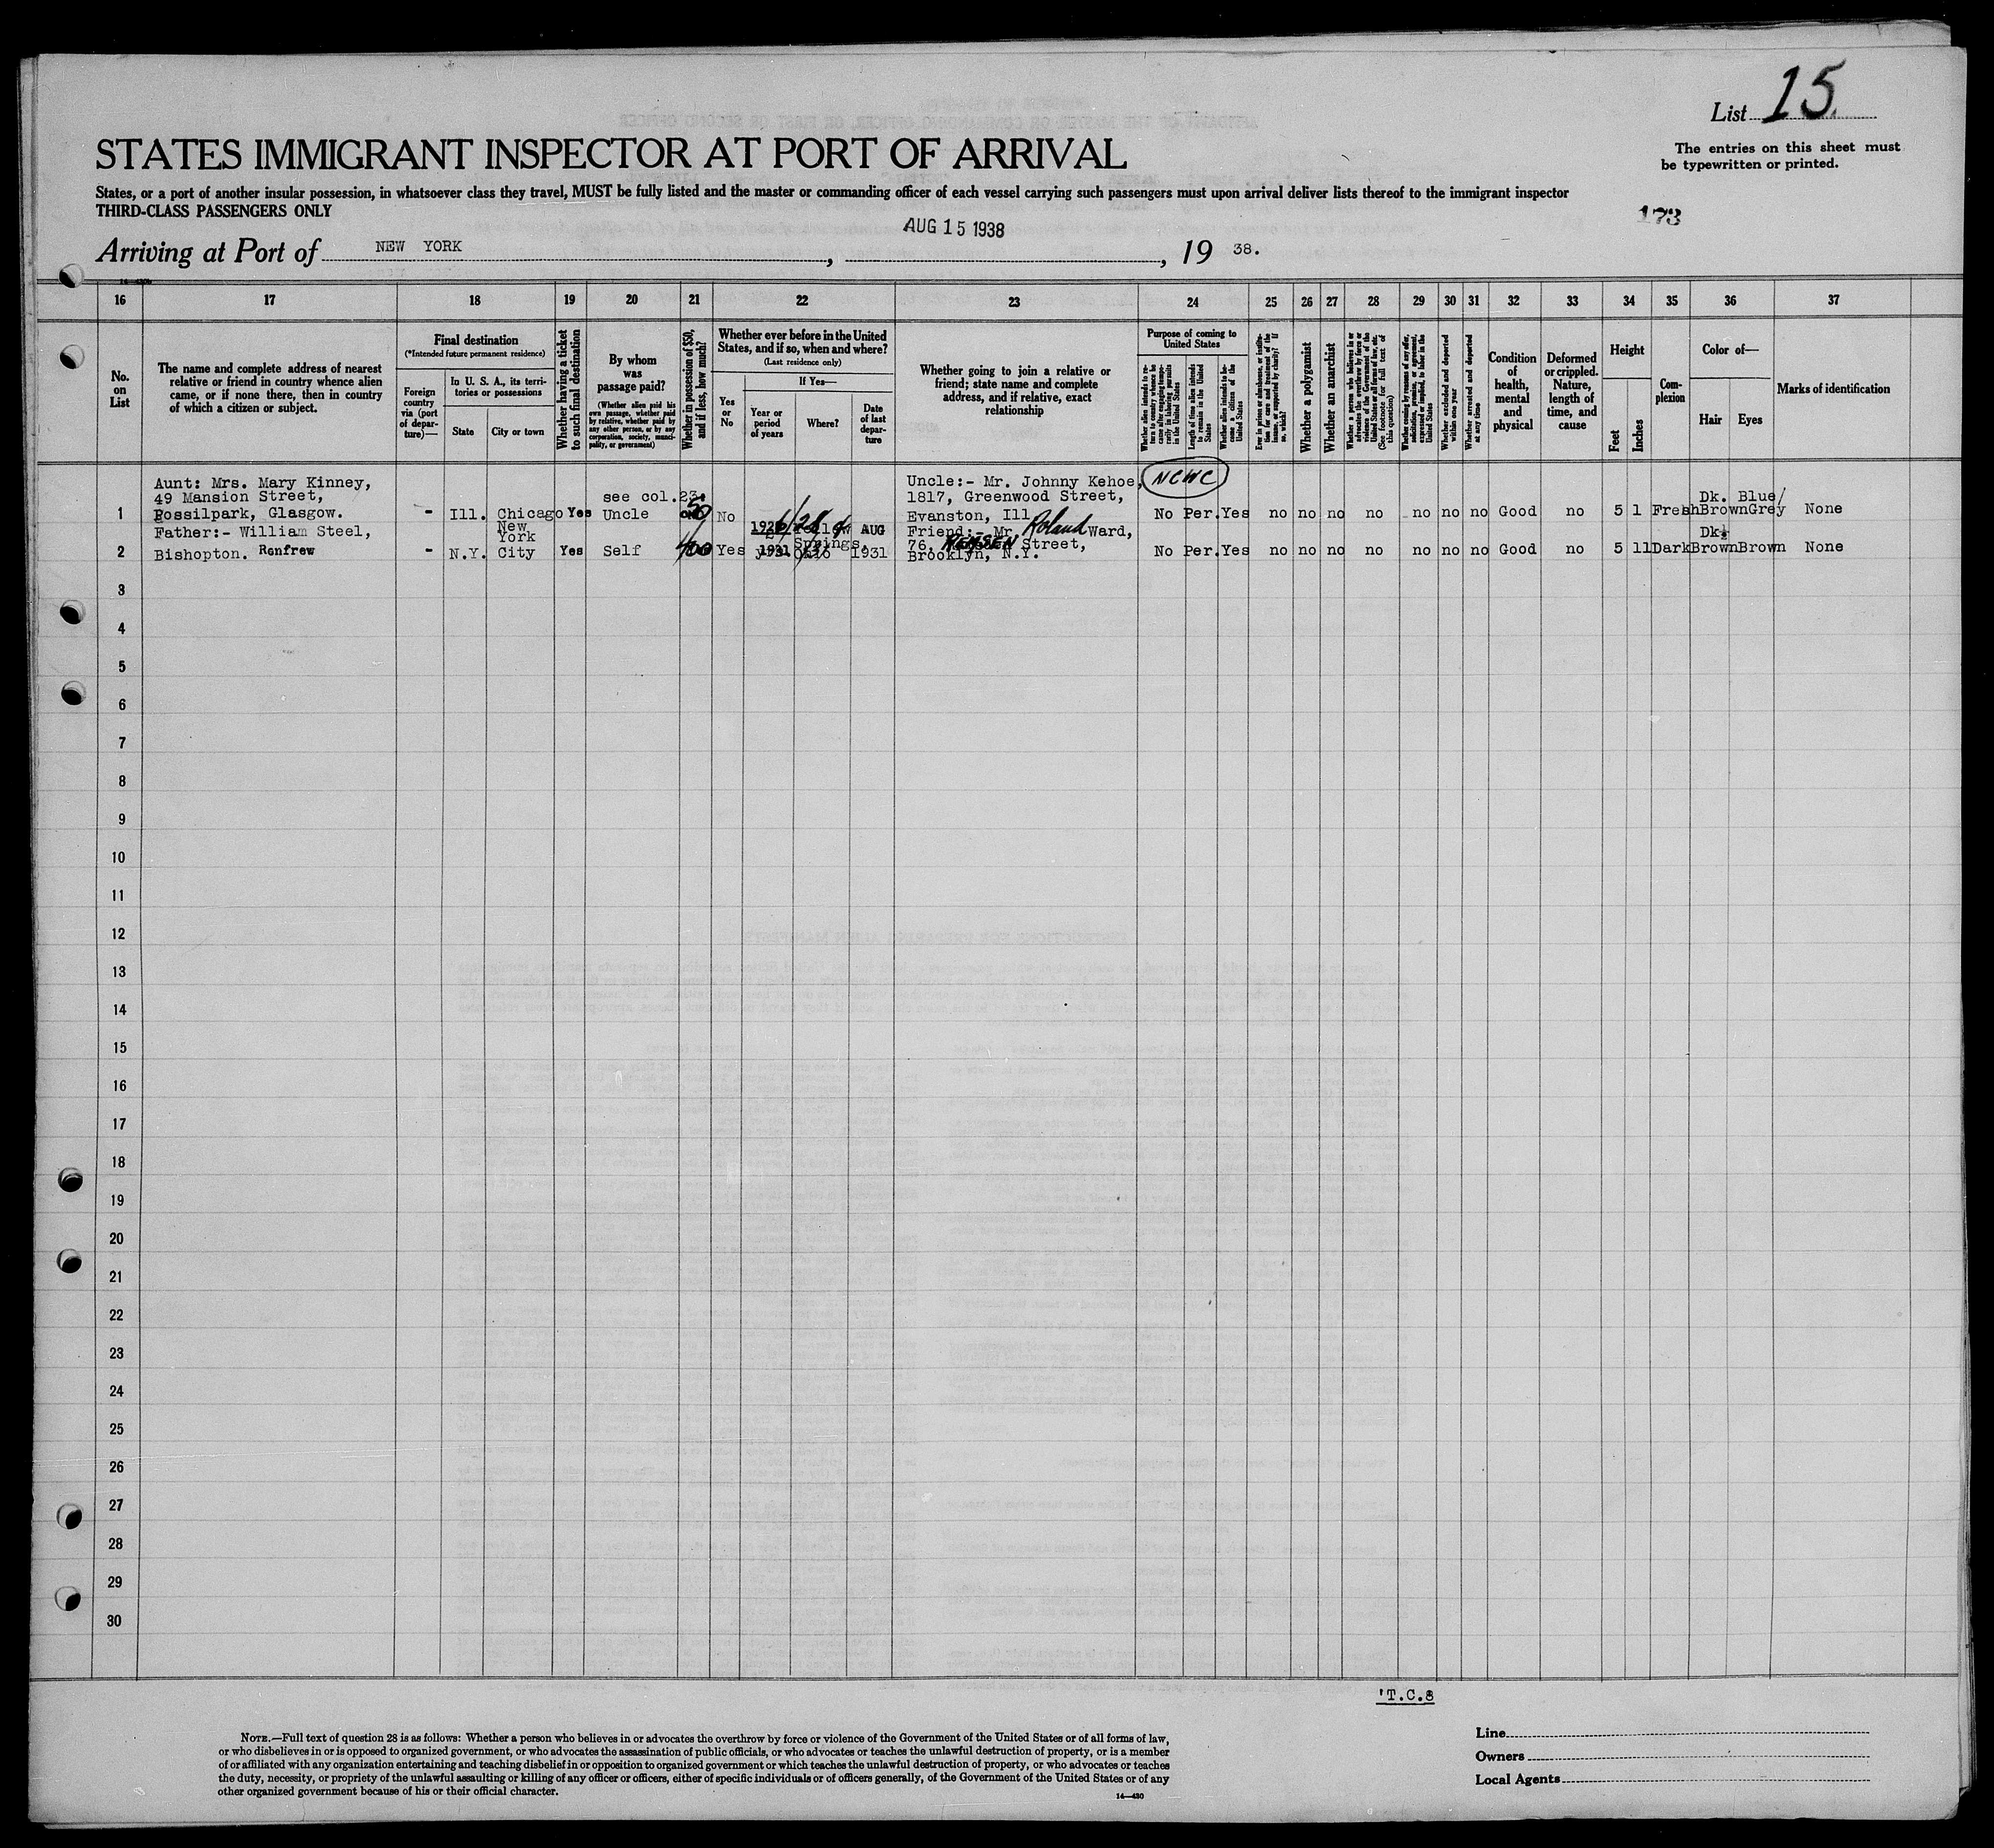 List 15.
The entries on this sheet must
be typewritten or printed.
STATES IMMIGRANT INSPECTOR AT PORT OF ARRIVAL
States, or a port of another insular possession, in whatsoever class they travel, MUST be fully listed and the master or commanding officer of each vessel carrying such passengers must upon arrival deliver lists thereof to the immigrant inspector
THIRD-CLASS PASSENGERS ONLY
173
AUG 15 1938
Arriving at Port of NEW YORK , , 19 38.
16 17 18 19 20 21 22 23 24 25 26 27 28 29 30 31 32 33 34 35 36 37
No. on List
The name and complete address of nearest
relative or friend in country whence alien
came, or if none there, then in country
of which a citizen or subject.
Final destination
(*Intended future permanent residence)
Foreign country via (port of departure)—
In U. S. A., its territories or possessions
State
City or town
Whether having a ticket to such final destination
By whom was passage paid?
(Whether alien paid his own passage, whether paid by relative, whether paid by any other person, or by any corporation, society, municipality, or government)
Whether in possession of $50, and if less, how much?
Whether ever before in the United
States, and if so, when and where?
(Last residence only)
Yes or No
If Yes—
Year or period of years
Where?
Date of last departure
Whether going to join a relative or
friend; state name and complete
address, and if relative, exact
relationship
Purpose of coming to
United States
Whether alien intends to return to country whence he came after engaging temporarily in laboring pursuits in the United States
Length of time alien intends to remain in the United States
Whether alien intends to become a citizen of the United States
Ever in prison or almshouse, or institution for care and treatment of the insane, or supported by charity? If so, which?
Whether a polygamist
Whether an anarchist
Whether coming by reasons of any offer, solicitation, promise, or agreement, expressed or implied, to labor in the United States
Whether excluded and deported within one year
Whether arrested and deported at any time
Condition of health, mental and physical
Deformed or crippled. Nature, length of time, and cause
Height
Feet
Inches
Complexion
Color of—
Hair
Eyes
Marks of identification
NCWC
1 Aunt: Mrs. Mary Kinney,
49 Mansion Street,
Possilpark, Glasgow.
- Ill. Chicago Yes see col.23. Uncle 50 No
Uncle:- Mr. Johnny Kehoe,
1817, Greenwood Street,
Evanston, Ill
No Per. Yes no no no no no no no Good no 5 1 Fresh Dk. Brown Blue/Grey None
2 Father:- William Steel,
Bishopton. Renfrew
- N.Y. New York City Yes Self 400 Yes
1931 Yellow Springs, Ohio AUG 1931
Friend:- Mr Roland Ward,
76, REMSEN Street,
Brooklyn, N.Y.
No Per. Yes no no no no no no no Good no 5 11 Dark Dk. Brown Brown None
3
4
5
6
7
8
9
10
11
12
13
14
15
16
17
18
19
20
21
22
23
24
25
26
27
28
29
30
'T.C.8
NOTE.—Full text of question 28 is as follows: Whether a person who believes in or advocates the overthrow by force or violence of the Government of the United States or of all forms of law,
or who disbelieves in or is opposed to organized government, or who advocates the assassination of public officials, or who advocates or teaches the unlawful destruction of property, or is a member
of or affiliated with any organization entertaining and teaching disbelief in or opposition to organized government or which teaches the unlawful destruction of property, or who advocates or teaches
the duty, necessity, or propriety of the unlawful assaulting or killing of any officer or officers, either of specific individuals or of officers generally, of the Government of the United States or of any
other organized government because of his or their official character.
14—430
Line
Owners
Local Agents